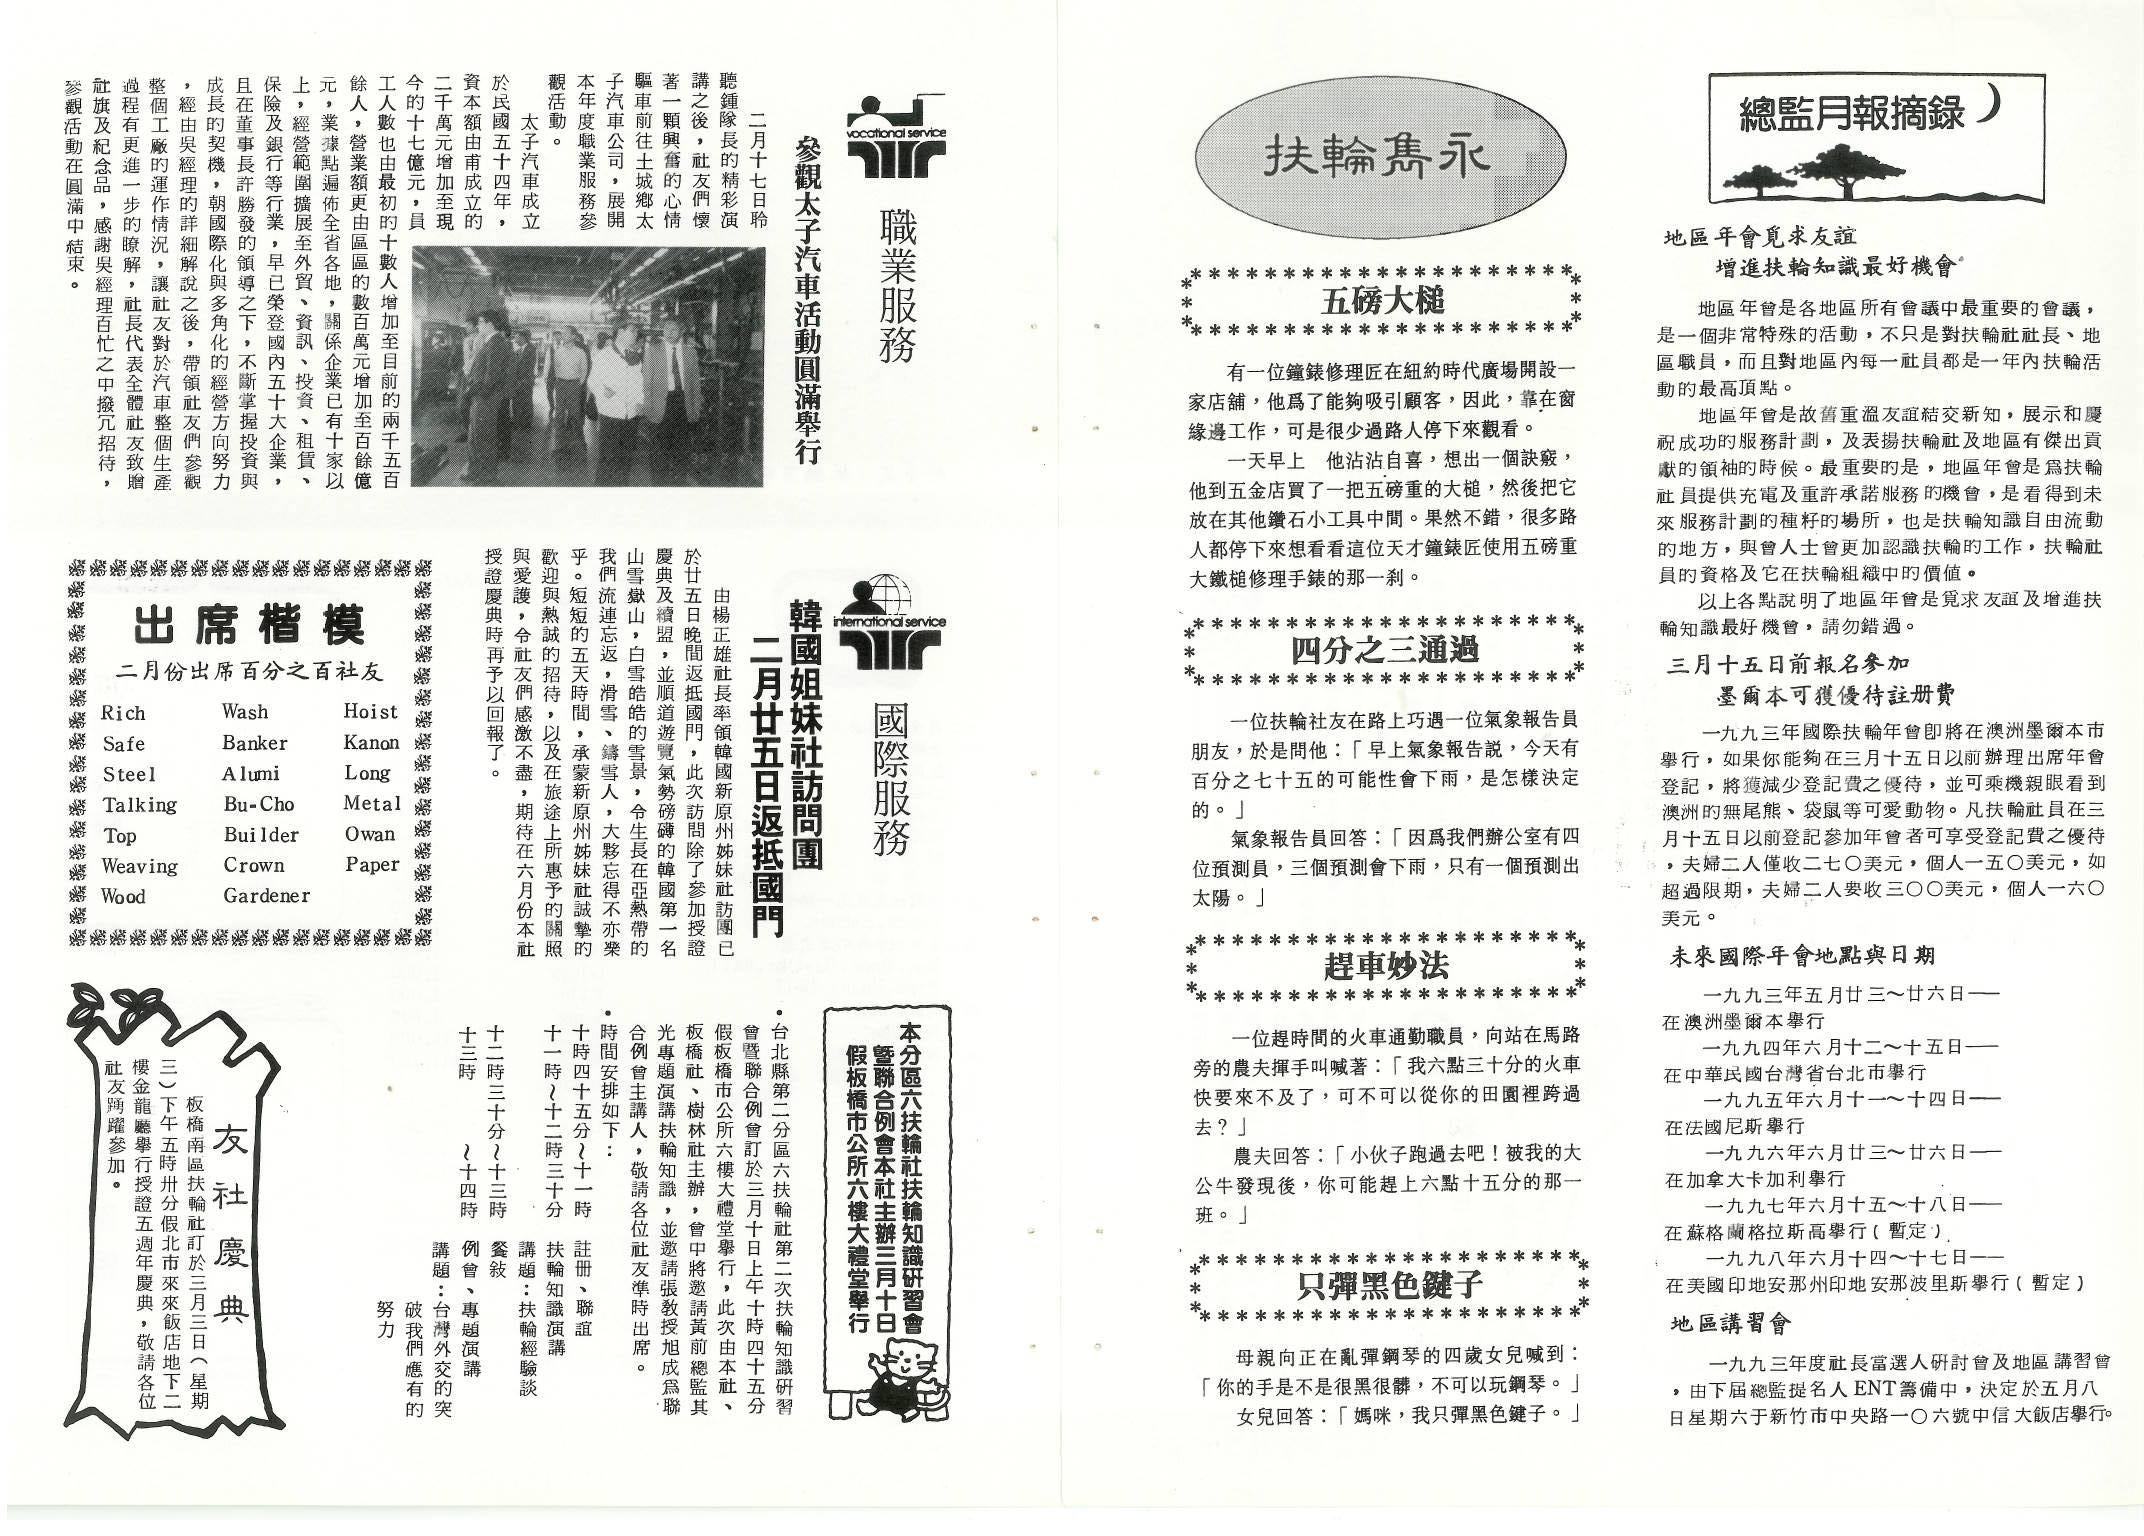 vocational service
職業服務
參觀太子汽車活動圓滿舉行
二月十七日聆
聽鍾隊長的精彩演
講之後，社友們懷
著一顆興奮的心情
驅車前往土城鄉太
子汽車公司，展開
本年度職業服務參
觀活動。
太子汽車成立
於民國五十四年，
資本額由甫成立的
二千萬元增加至現
今的十七億元，員
工人數也由最初的十數人增加至目前的兩千五百
餘人，營業額更由區區的數百萬元增加至百餘億
元，業據點遍佈全省各地，關係企業已有十家以
上，經營範圍擴展至外貿、資訊、投資、租賃、
保險及銀行等行業，早已榮登國內五十大企業，
且在董事長許勝發的領導之下，不斷掌握投資與
成長的契機，朝國際化與多角化的經營方向努力
，經由吳經理的詳細解說之後，帶領社友們參觀
整個工廠的運作情況，讓社友對於汽車整個生產
過程有更進一步的瞭解，社長代表全體社友致贈
社旗及紀念品，感謝吳經理百忙之中撥冗招待，
參觀活動在圓滿中結束。
international service
國際服務
韓國姐妹社訪問團
二月廿五日返抵國門
由楊正雄社長率領韓國新原州姊妹社訪團已
於廿五日晚間返抵國門，此次訪問除了參加授證
慶典及續盟，並順道遊覽氣勢磅礡的韓國第一名
山雪嶽山，白雪皓皓的雪景，令生長在亞熱帶的
我們流連忘返，滑雪、鑄雪人，大夥忘得不亦樂
乎。短短的五天時間，承蒙新原州姊妹社誠摯的
歡迎與熱誠的招待，以及在旅途上所惠予的關照
與愛護，令社友們感激不盡，期待在六月份本社
授證慶典時再予以回報了。
出席楷模
二月份出席百分之百社友
Rich Wash Hoist
Safe Banker Kanon
Steel Alumi Long
Talking Bu-Cho Metal
Top Builder Owan
Weaving Crown Paper
Wood Gardener
本分區六扶輪社扶輪知識研習會
暨聯合例會本社主辦三月十日
假板橋市公所六樓大禮堂舉行
•台北縣第二分區六扶輪社第二次扶輪知識研習
會暨聯合例會訂於三月十日上午十時四十五分
假板橋市公所六樓大禮堂舉行，此次由本社、
板橋社、樹林社主辦，會中將邀請黃前總監其
光專題演講扶輪知識，並邀請張教授旭成為聯
合例會主講人，敬請各位社友準時出席。
•時間安排如下：
十時四十五分～十一時 註册、聯誼
十一時～十二時三十分 扶輪知識演講
講題：扶輪經驗談
十二時三十分～十三時 餐敍
十三時 ～十四時 例會、專題演講
講題：台灣外交的突
破我們應有的
努力
友社慶典
板橋南區扶輪社訂於三月三日(星期
三)下午五時卅分假北市來來飯店地下二
樓金龍廳舉行授證五週年慶典，敬請各位
社友踴躍參加。
扶輪雋永
五磅大槌
有一位鐘錶修理匠在紐約時代廣場開設一
家店舖，他爲了能夠吸引顧客，因此，靠在窗
緣邊工作，可是很少過路人停下來觀看。
一天早上　他沾沾自喜，想出一個訣竅，
他到五金店買了一把五磅重的大槌，然後把它
放在其他鑽石小工具中間。果然不錯，很多路
人都停下來想看看這位天才鐘錶匠使用五磅重
大鐵槌修理手錶的那一刹。
四分之三通過
一位扶輪社友在路上巧遇一位氣象報告員
朋友，於是問他：「早上氣象報告説，今天有
百分之七十五的可能性會下雨，是怎樣決定
的。」
氣象報告員回答：「因爲我們辦公室有四
位預測員，三個預測會下雨，只有一個預測出
太陽。」
趕車妙法
一位趕時間的火車通勤職員，向站在馬路
旁的農夫揮手叫喊著：「我六點三十分的火車
快要來不及了，可不可以從你的田園裡跨過
去？」
農夫回答：「小伙子跑過去吧！被我的大
公牛發現後，你可能趕上六點十五分的那一
班。」
只彈黑色鍵子
母親向正在亂彈鋼琴的四歲女兒喊到：
「你的手是不是很黑很髒，不可以玩鋼琴。」
女兒回答：「媽咪，我只彈黑色鍵子。」
總監月報摘錄
地區年會覓求友誼
增進扶輪知識最好機會
地區年會是各地區所有會議中最重要的會議，
是一個非常特殊的活動，不只是對扶輪社社長、地
區職員，而且對地區內每一社員都是一年內扶輪活
動的最高頂點。
地區年會是故舊重溫友誼結交新知，展示和慶
祝成功的服務計劃，及表揚扶輪社及地區有傑出貢
獻的領袖的時候。最重要的是，地區年會是爲扶輪
社員提供充電及重許承諾服務的機會，是看得到未
來服務計劃的種籽的場所，也是扶輪知識自由流動
的地方，與會人士會更加認識扶輪的工作，扶輪社
員的資格及它在扶輪組織中的價值。
以上各點說明了地區年會是覓求友誼及增進扶
輪知識最好機會，請勿錯過。
三月十五日前報名參加
墨爾本可獲優待註册費
一九九三年國際扶輪年會卽將在澳洲墨爾本市
舉行，如果你能夠在三月十五日以前辦理出席年會
登記，將獲減少登記費之優待，並可乘機親眼看到
澳洲的無尾熊、袋鼠等可愛動物。凡扶輪社員在三
月十五日以前登記參加年會者可享受登記費之優待
，夫婦二人僅收二七〇美元，個人一五〇美元，如
超過限期，夫婦二人要收三〇〇美元，個人一六〇
美元。
未來國際年會地點與日期
一九九三年五月廿三～廿六日──
在澳洲墨爾本舉行
一九九四年六月十二～十五日──
在中華民國台灣省台北市舉行
一九九五年六月十一～十四日──
在法國尼斯舉行
一九九六年六月廿三～廿六日──
在加拿大卡加利舉行
一九九七年六月十五～十八日──
在蘇格蘭格拉斯高舉行(暫定)
一九九八年六月十四～十七日──
在美國印地安那州印地安那波里斯舉行(暫定)
地區講習會
一九九三年度社長當選人研討會及地區講習會
，由下屆總監提名人ENT籌備中，決定於五月八
日星期六于新竹市中央路一〇六號中信大飯店舉行。